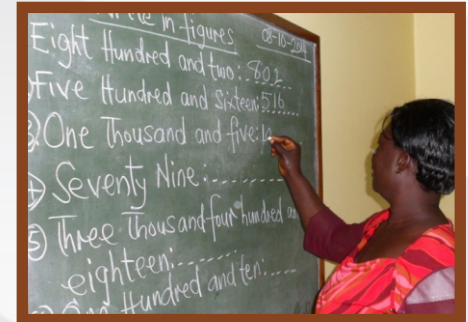 Write in figures 08-10-2014
Eight Hundred and two:..802
Five Hundred and Sixteen:516
③ One Thousand and five:1
④ Seventy Nine:.........
⑤ Three Thousand four hundred
eighteen:......
One Hundred and ten:....